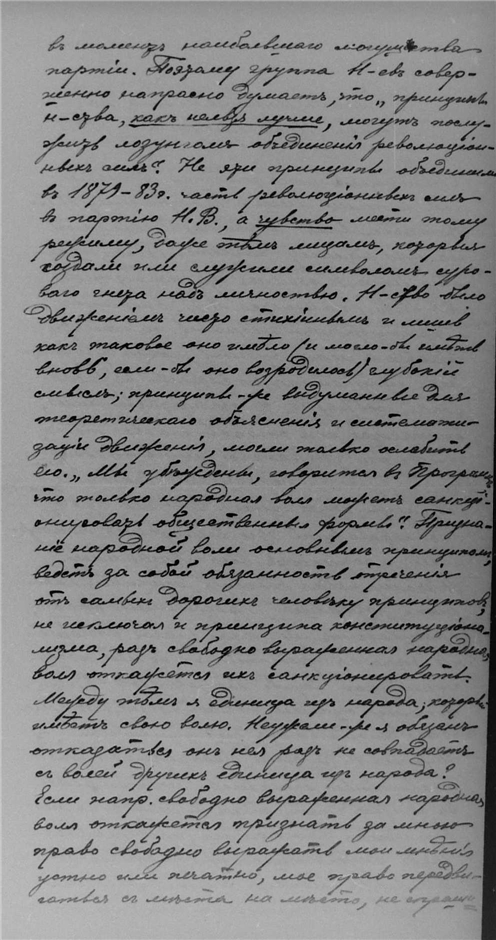 въ моментъ наибольшаго могущества
партіи. Поэтому группа Н-евъ совер-
женно напрасно думаетъ, что „принципы
Н-ства, какъ нельзя лучше, могутъ послу-
жить лозунгомъ объединенія революціон-
ныхъ силъ“? Не эти принципы объединили
въ 1879-83г. часть революціонныхъ силъ
въ партію Н.В., а чувство мести тому
режиму, даже тѣмъ лицамъ, которыя
создали или служили символомъ суро-
ваго гнета надъ личностью. Н-ство было
движеніемъ чисто стихійнымъ и лишь
какъ таковое оно имѣло (и могло-бы имѣть
вновь, если-бы оно возродилось) глубокій
смыслъ; принципы-же выдуманные для
теоретическаго объясненія и системати-
заціи движенія, могли только ослабить
его. „Мы убѣждены, говорится въ Программѣ,
что только народная воля можетъ санкці-
онировать общественныя формы“? Призна-
ніе народной воли основнымъ принципомъ,
ведетъ за собой обязанность отреченія
отъ самыхъ дорогихъ человѣку принциповъ,
не исключая и принципа конституціона-
лизма, разъ свободно выраженная народная
воля откажется ихъ санкціонировать.
Между тѣмъ я единица изъ народа, которая
имѣетъ свою волю. Неужели-же я обязанъ
отказаться отъ нея разъ не совпадаетъ
съ волей другихъ единицъ изъ народа?
Если напр. свободно выраженная народная
воля откажется признать за мною
право свободно выражать мои мнѣнія
устно или печатно, мое право передви-
гаться съ мѣста на мѣсто, не спраши-